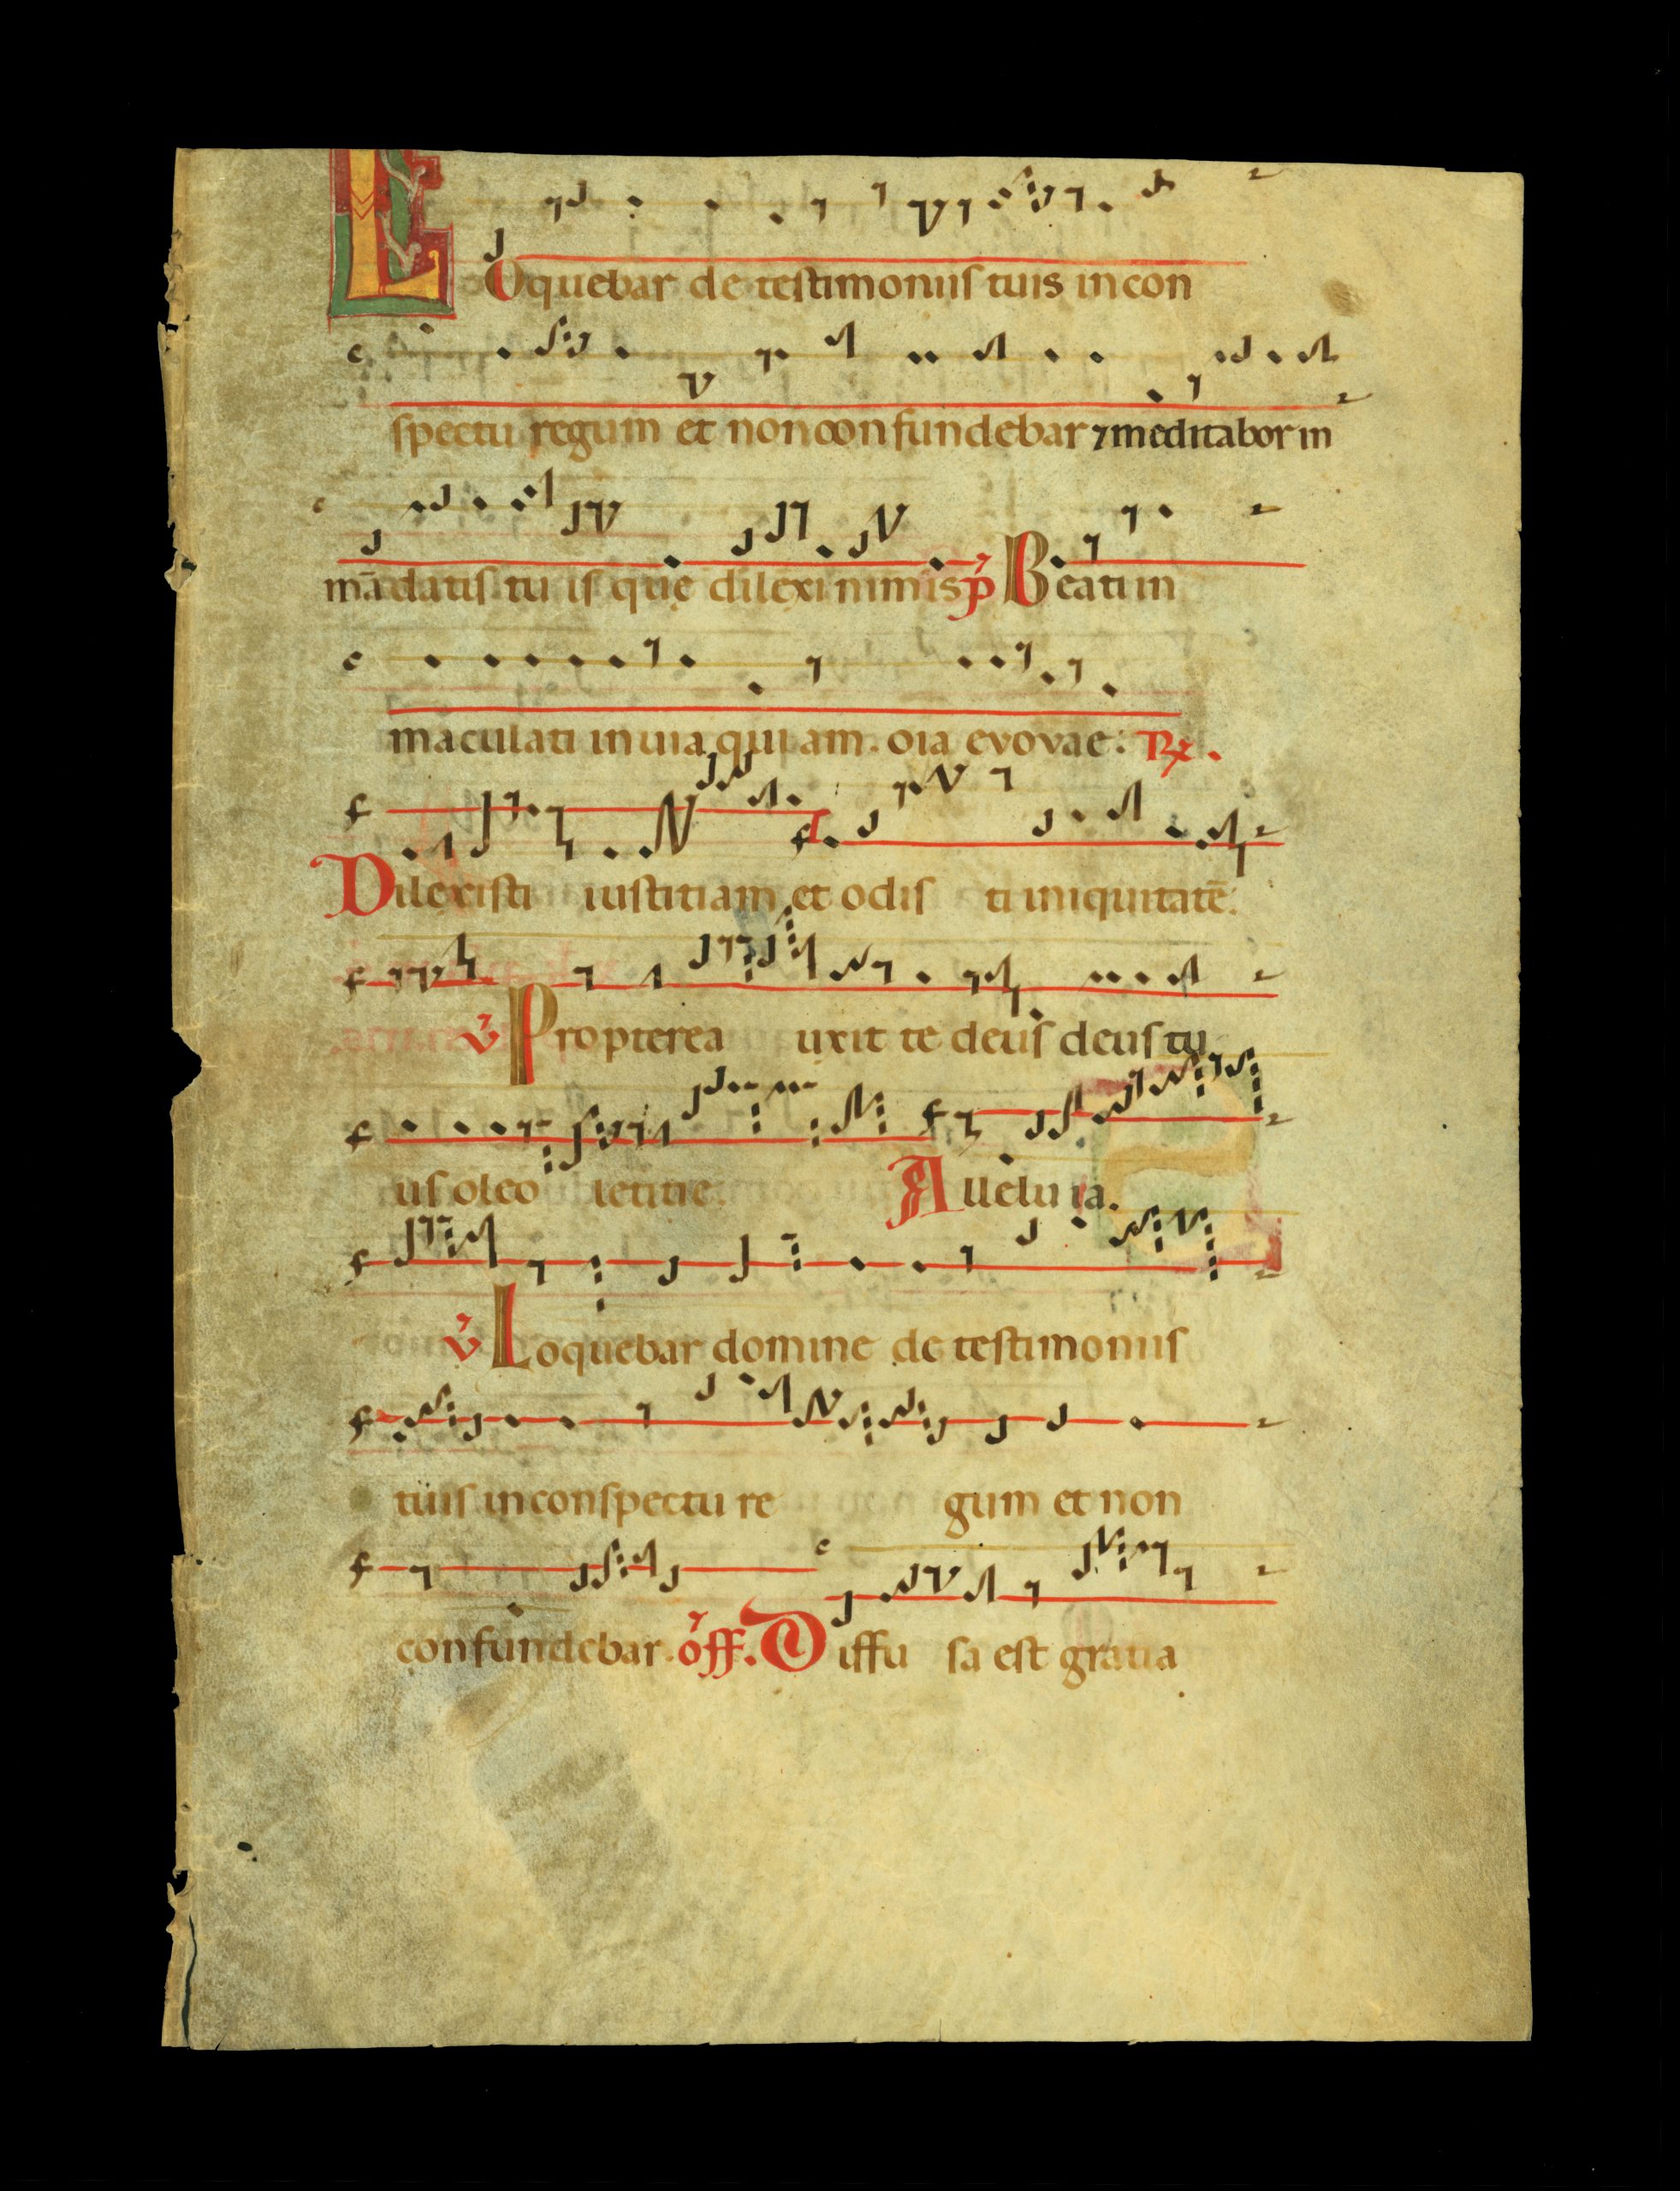 LOquebar de testimoniis tuis in con
spectu regum et non confundebar ⁊ meditabor in
mādatis tu is que dilexi nimis p̄ Beati in
maculati in uia qui am. oia evovae: ℞.
Dilexisti iustitiam et odis ti iniquitatē.
v̄ Propterea unxit te deus deus tu
us oleo letitie. Allelu ia.
v̄ Loquebar domine de testimoniis
tuis in conspectu re gum et non
confundebar. off. Diffu sa est gratia